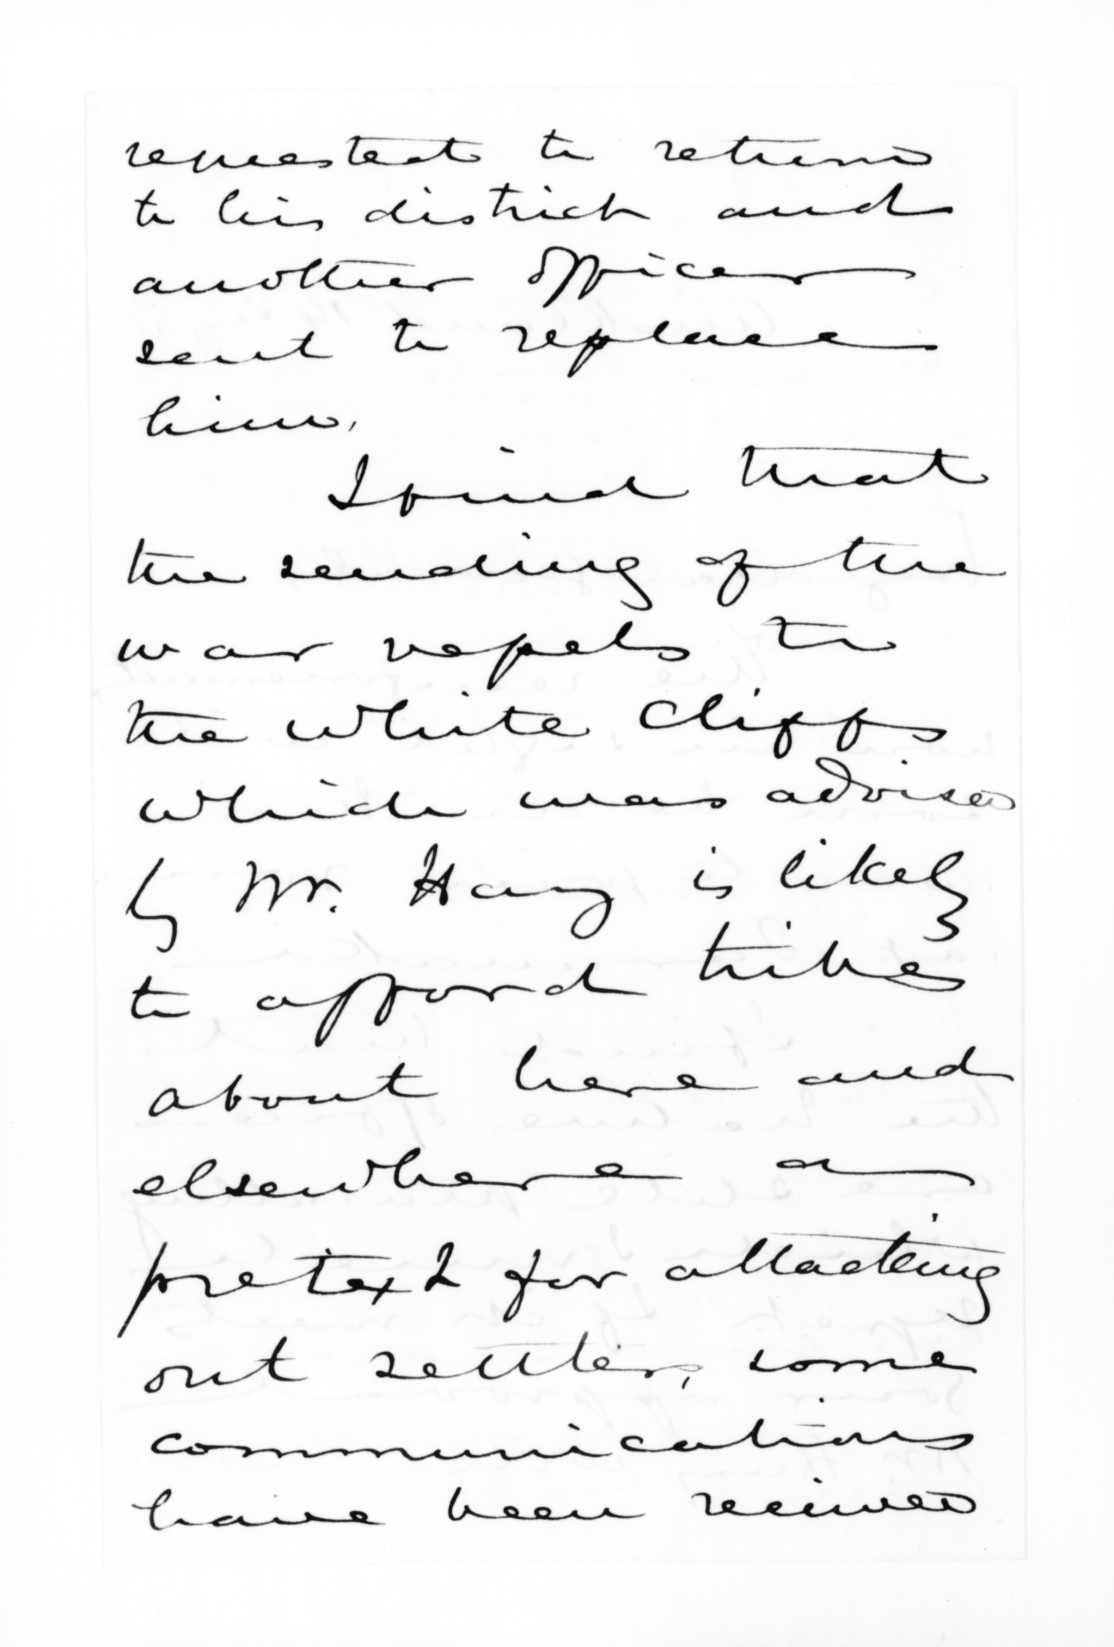 requested to return
to his district and
another officer
sent to replace
him.
I find that
the sending of the
war vessels to
the White Cliffs
which was advised
by Mr. Hay is likely
to afford tribes
about here and
elsewhere a
pretext for attacking
out settlers, some
communications
have been received